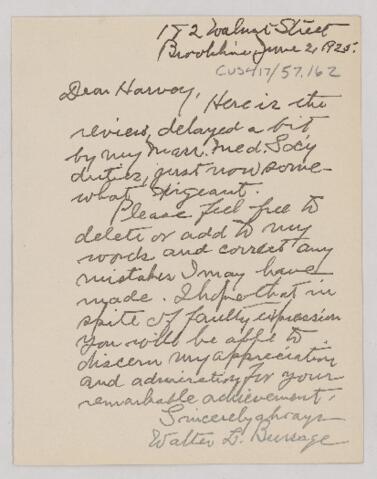 182 Walnut Street
Brookline, June 2, 1925.
CUS417/57.162
Dear Harvey, Here is the
review, delayed a bit
by my Mass. Med. Soc'y
duties, just now some-
what exigeant.
Please feel free to
delete or add to my
words and correct any
mistakes I may have
made. I hope that in
spite of faulty expression
you will be able to
discern my appreciation
and admiration for your
remarkable achievement.
Sincerely always
Walter L. Burrage